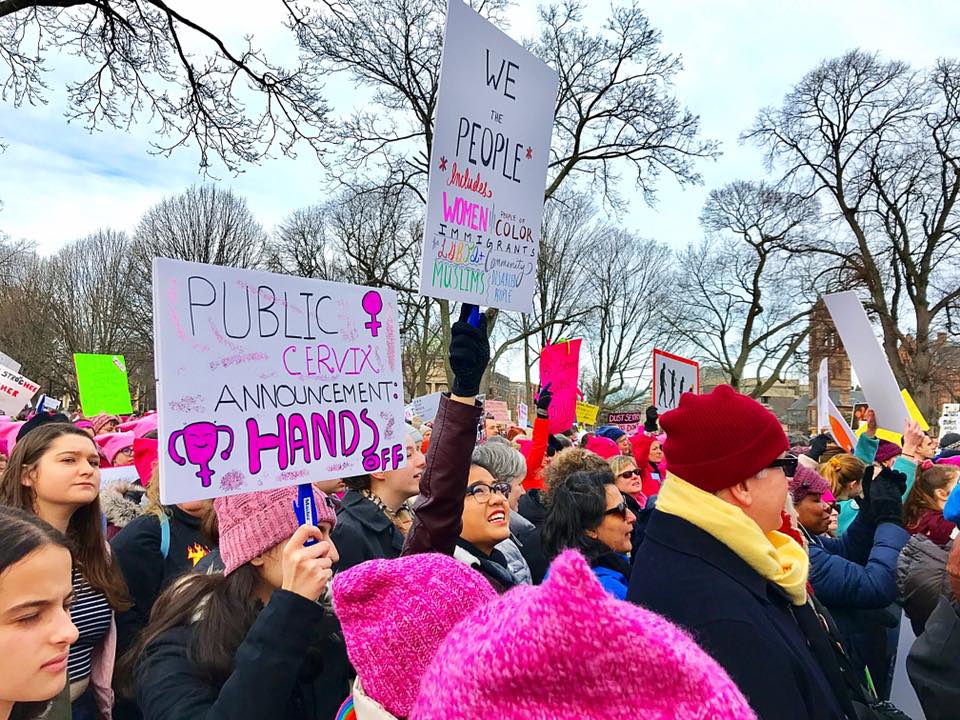 WE
THE
PEOPLE*
* Includes
WOMEN
PEOPLE OF
COLOR
IMMIGRANT'S
LGBTQ+
Community
MUSLIMS
DISABLED
PEOPLE
PUBLIC
CERVIX
ANNOUNCEMENT:
HANDS
OFF
STRONGHER
HER